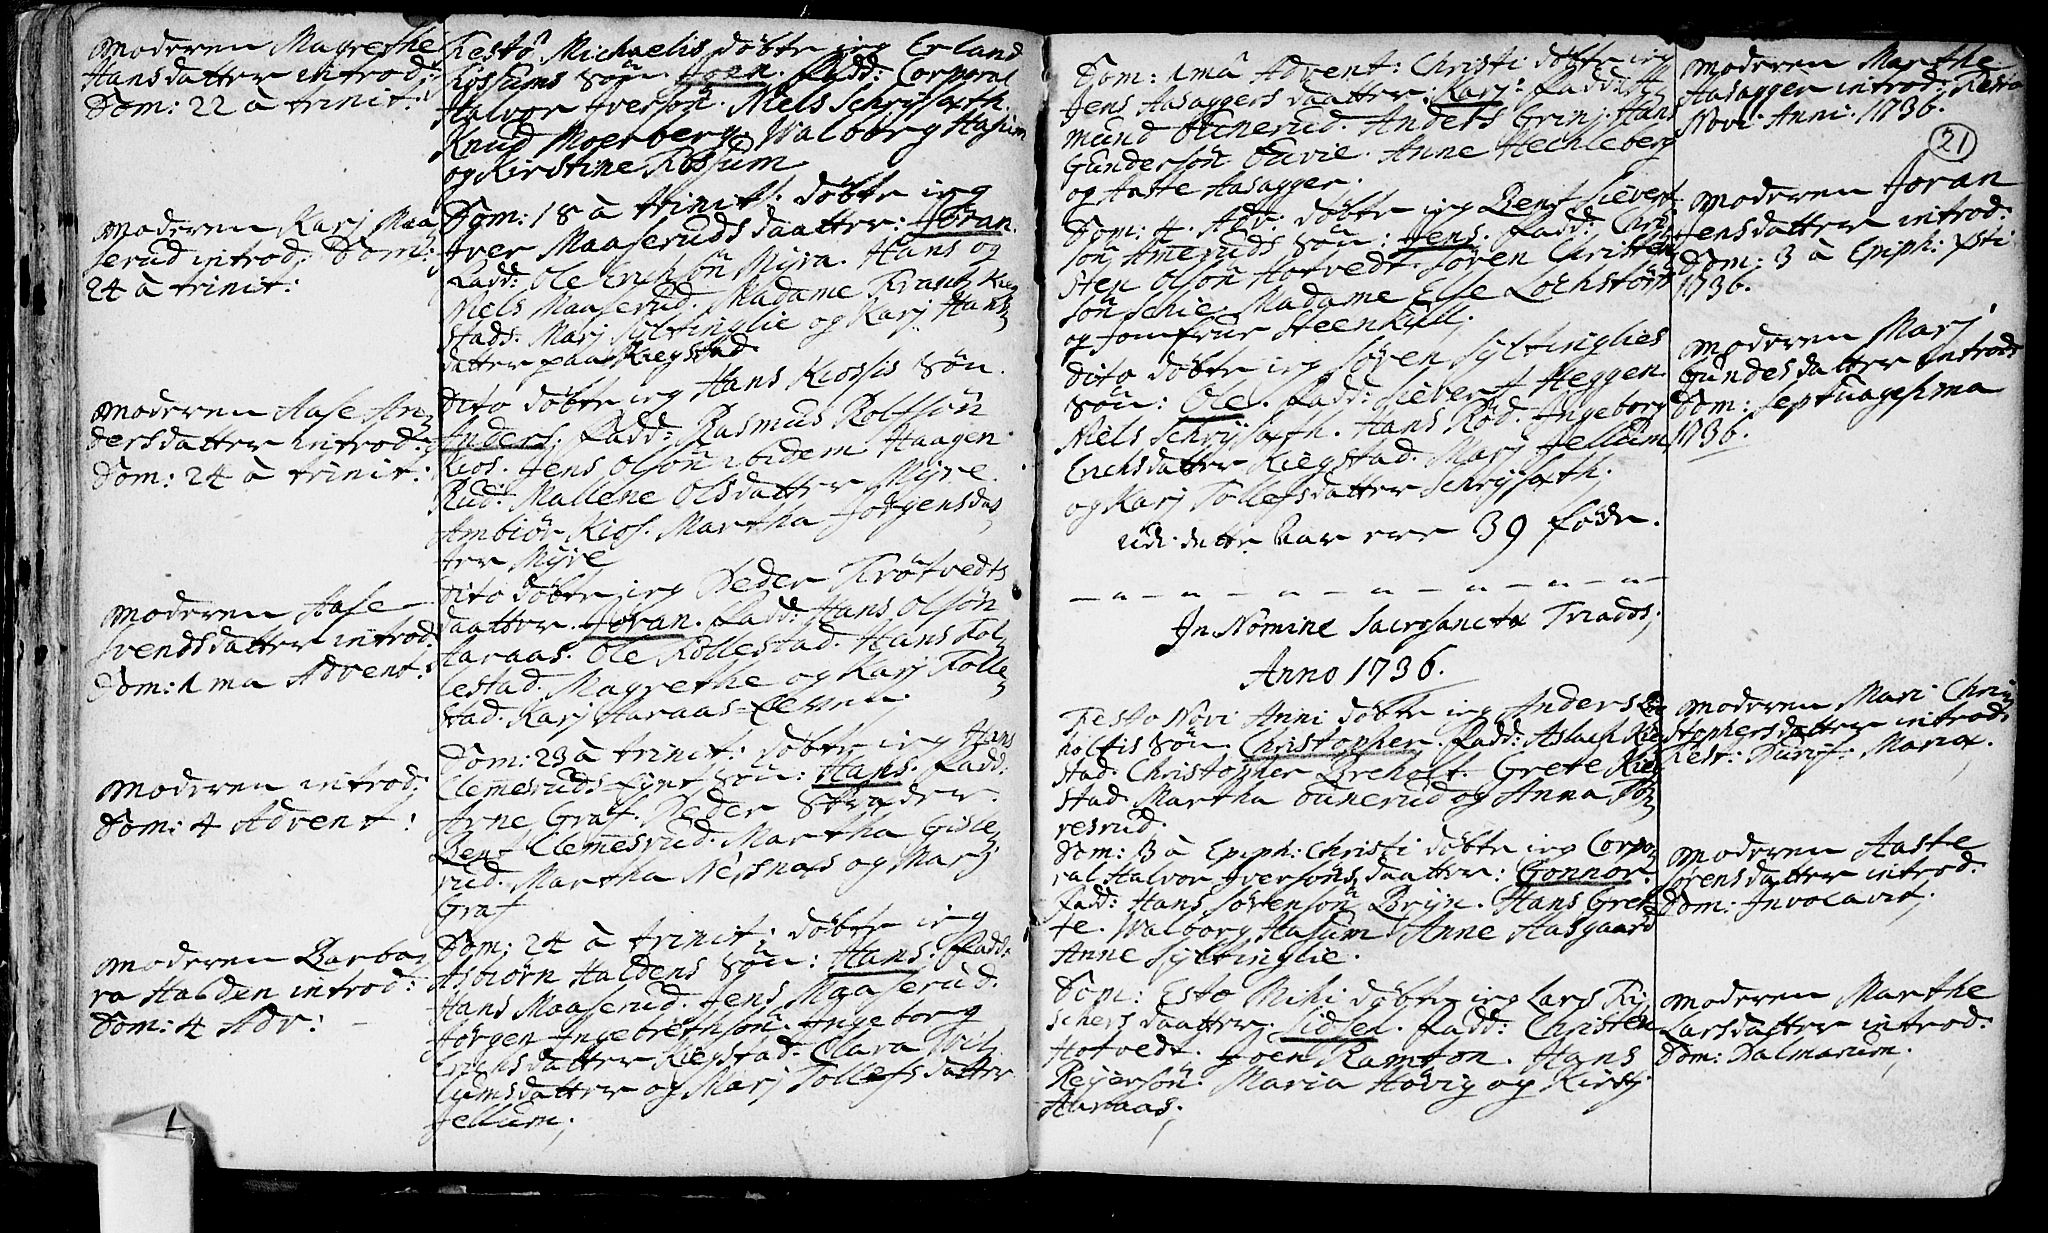 Moderen Magrethe
Hansdatter introd:
Dom: 22 à trinit:
Moderen Karj Maa
serud introd: Dom:
24 à trinit:
Moderen Aase An
dersdatter introd:
Dom: 24 à trinit:
Moderen Aase
Svendsdatter introd
Dom: 1ma Advent:
Moderen introd:
Dom: 4 Advent:
Moderen Barba
ra Halden introd:
Dom: 4 Adv:
Festo Michaelis döbte ieg Erland
Rossums Sön. Fadd: Corporal
Halvor Jversön. Niels Schrijsæth.
Knud Moerberg. Walborg Hasum
og Kirstine Rossum
Dom: 18 à trinit: döbte ieg
Jver Maaseruds daatter: Jöran.
Fadd: Ole Erichsön Myra. Hans og
Niels Maaserud. Madame Krantz Kieg
stads. Marj Syltinglie og Karj Hans
datter paa Kiegstad.
Dito döbte ieg Hans Kiossis Sön.
Anders: Fadd: Rasmus Rolfsön
Kios. Jens Olsön ibidem Haagen
Rud. Mallene Olsdatter Myre.
Ambiör Kios. Martha Jörgensdat
ter Myre
Dito döbte ieg Peder Krötvedts
daatter. Jöran. Fadd: Hans Olsön
Haraas. Ole Follestad. Hans Fol
lestad. Magrethe og Karj Folle
stad. Karj Haraas
Dom: 23 à trinit: döbte ieg Hans
Clemesruds Sön: Hans. Fadd:
Arne Graf. Peder Strader.
Bent Clemesrud. Martha Gisle
rud. Martha Nersnæs og Marj
Graf
Dom: 24 à trinit: döbte ieg
Asbiörn Haldens Sön: Hans. Fadd:
Hans Maaserud. Jens Maaserud.
Jörgen Ingebrethsön. Ingeborg
Erichsdatter Kiegstad. Clara Wil
lumsdatter og Marj Tollefsdatter
Jellum;
Dom: 1mâ Advent: Christi döbte ieg
Jens Aasaggers daatter: Karj: Fadd:
mund Ounerud. Anders Grinj. Hans
Gundersön Ouvie. Anne Hechleberg
og Aaste Aasagger.
Dom: 4. Adv: döbte ieg Bent Sievert
sön Ameruds Sön: Jens. Fadd: Chri
sten Olsön Hotvedt. Sören Christen
sön Schie. Madame Else Lochstörs
og Jomfrue Steenkull;
Dito döbte ieg Sören Syltinglies
Sön: Ole. Fadd: Sievert Heggen
Niels Schrijsæth. Hans Röd. Ingeborg
Erichsdatter Kiegstad. Marj Jellum
og Karj Tollefsdatter Schrijsæth.
Udi dette Aar ere 39 födde.
In Nomine Sacrosanctæ Triados;
Anno 1736.
Festo Novi Anni döbte ieg Anders Bre
holtis Sön. Christopher. Fadd: Aslach Kieg
stad. Christopher Breholt. Grete Kieg
stad. Martha Ounerud og Anna To
resrud.
Dom: 3 à Epiph: Christi döbte ieg Corpo
ral Halvor Jversöns daatter: Gonnor.
Fadd: Hans Sörensön Bryn. Hans Gret
te. Walborg Hasum. Anne Aasgaard
Anne Syltinglie.
Dom: Esto Mihi döbte ieg Lars Fi
schers daatter. Lidsel. Fadd: Christen
Hotvedt. Joen Ramton. Hans
Reijersön. Maria Hövig og Kirstj
Haraas;
Moderen Marthe
Aasagger introd: Festo
Novi Anni. 1736.
21
Moderen Joran
Jensdatter introd:
Dom: 3 à Epiph: Xsti
1736.
Moderen Marj
Gundesdatter introd:
Dom: Septuagesima
1736.
Moderen Mari Chri
stophersdatter introd:
Fest: Purif: Mariæ.
Moderen Aaste
Sörensdatter introd:
Dom: Invocavit;
Moderen Marthe
Larsdatter introd:
Dom: Palmarum;